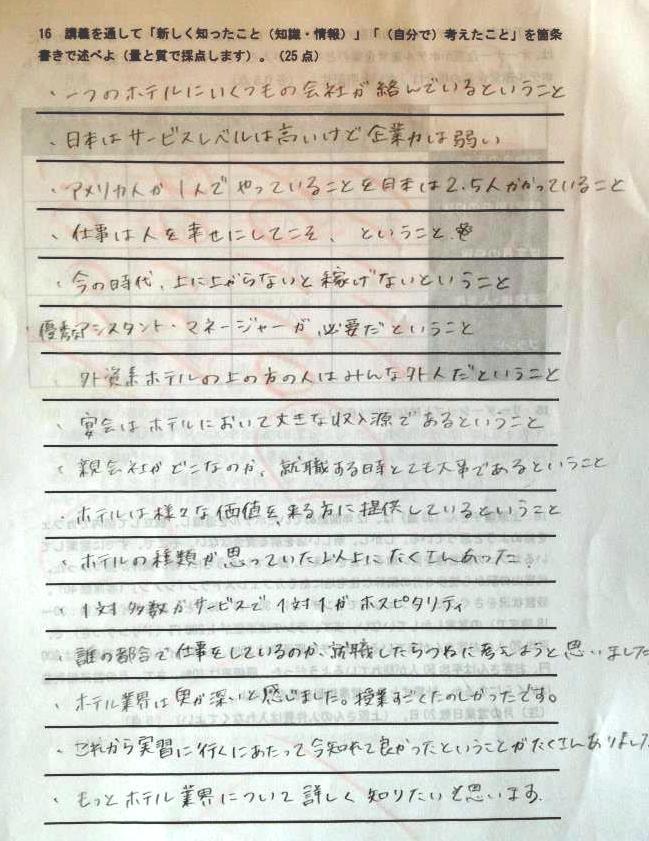 16 講義を通して「新しく知ったこと（知識・情報）」「（自分で）考えたこと」を箇条
書きで述べよ（量と質で採点します）。（25点）
・一つのホテルにいくつもの会社が絡んでいるということ
・日本はサービスレベルは高いけど企業力は弱い
・アメリカ人が1人でやっていることを日本は2.5人かかっていること
・仕事は人を幸せにしてこそ、ということ
・今の時代、上に上がらないと稼げないということ
・優秀なアシスタント・マネージャーが必要だということ
外資系ホテルの上の方の人はみんな外人だということ
・宴会はホテルにおいて大きな収入源であるということ
・親会社がどこなのか、就職する時とても大事であるということ
・ホテルは様々な価値を来る方に提供しているということ
・ホテルの種類が思っていた以上にたくさんあった
・1対多数がサービスで1対1がホスピタリティ
誰の都合で仕事をしているのか、就職したらつねに考えようと思いました
・ホテル業界は奥が深いと感じました。授業すごくたのしかったです。
・これから実習に行くにあたって今知れて良かったということがたくさんありました
・もっとホテル業界について詳しく知りたいと思います。